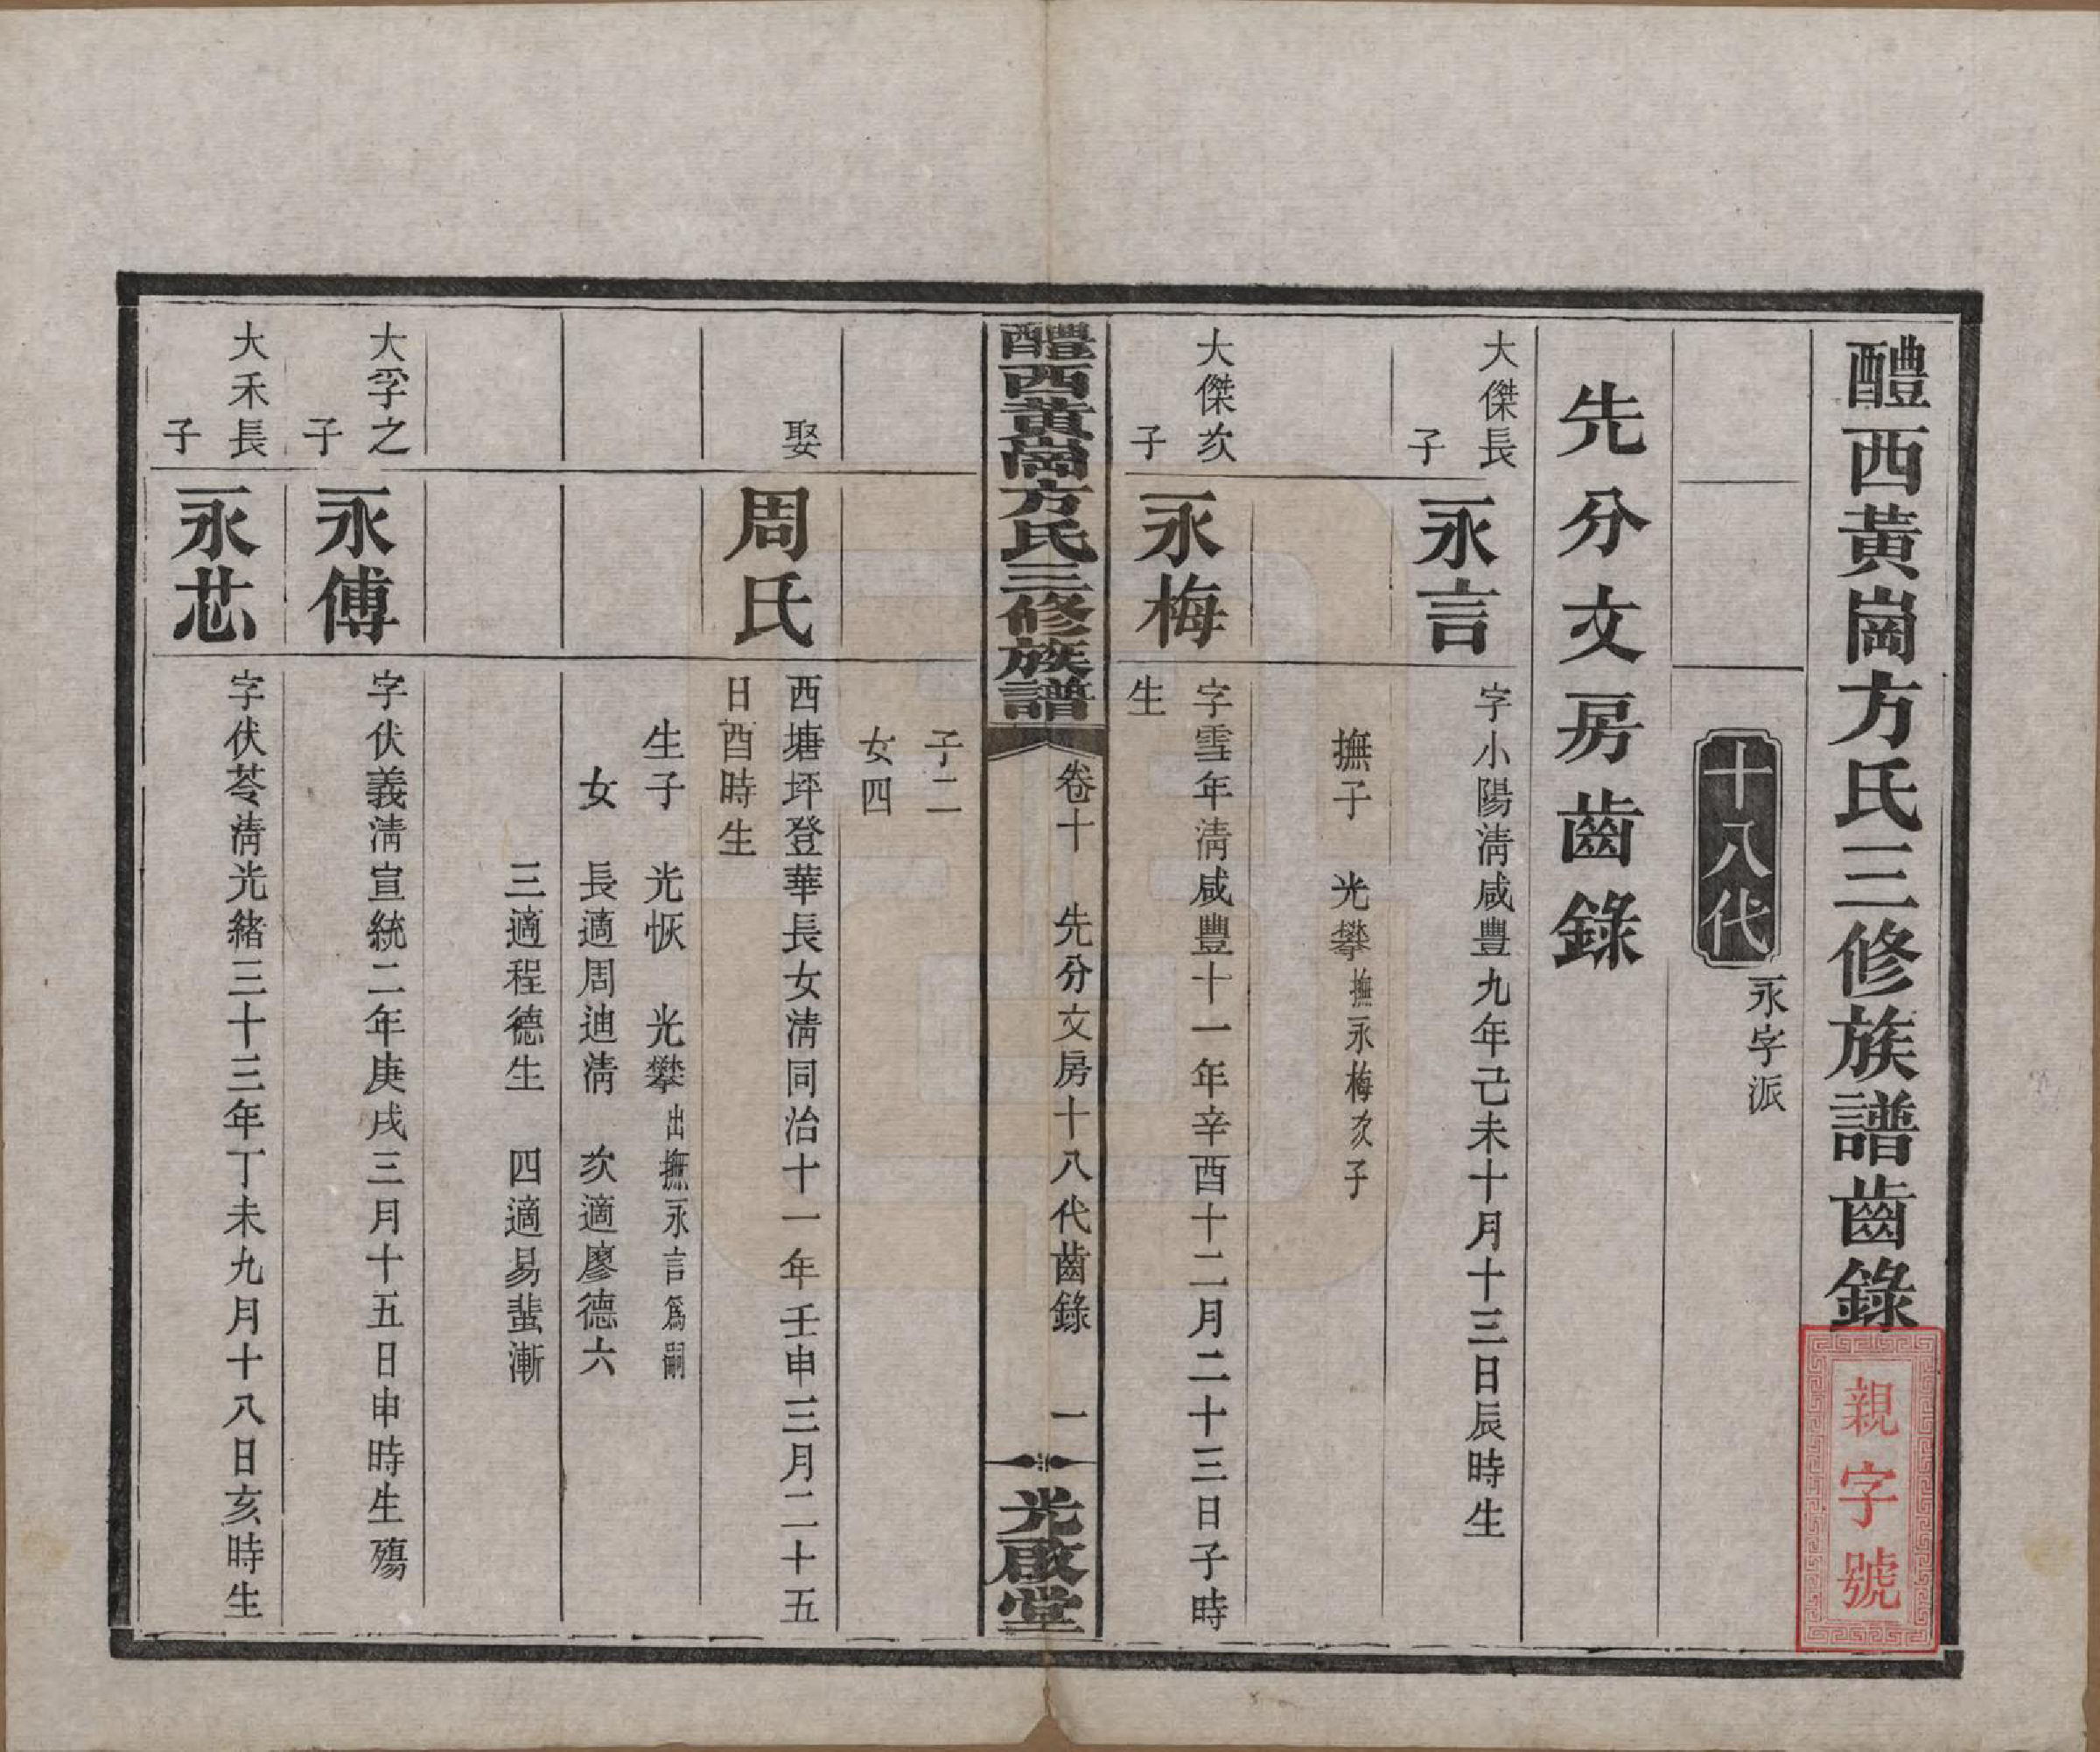 醴西黃崗方氏三修族譜齒錄
親字號
十八代
永字派
先分文房齒錄
大傑長
子
永言
字小陽淸咸豐九年己未十月十三日辰時生
撫子　光攀撫永梅次子
大傑次
子
永梅
字雪年淸咸豐十一年辛酉十二月二十三日子時
生
醴西黃崗方氏三修族譜
卷十　先分文房十八代齒錄　一
光啟堂
子二
女四
娶
周氏
西塘坪登華長女淸同治十一年壬申三月二十五
日酉時生
生子　光恢　光攀出撫永言爲嗣
女　長適周迪淸　次適廖德六
三適程德生　四適易蜚漸
大孚之
子
永傅
字伏義淸宣統二年庚戌三月十五日申時生殤
大禾長
子
永芯
字伏苓淸光緒三十三年丁未九月十八日亥時生